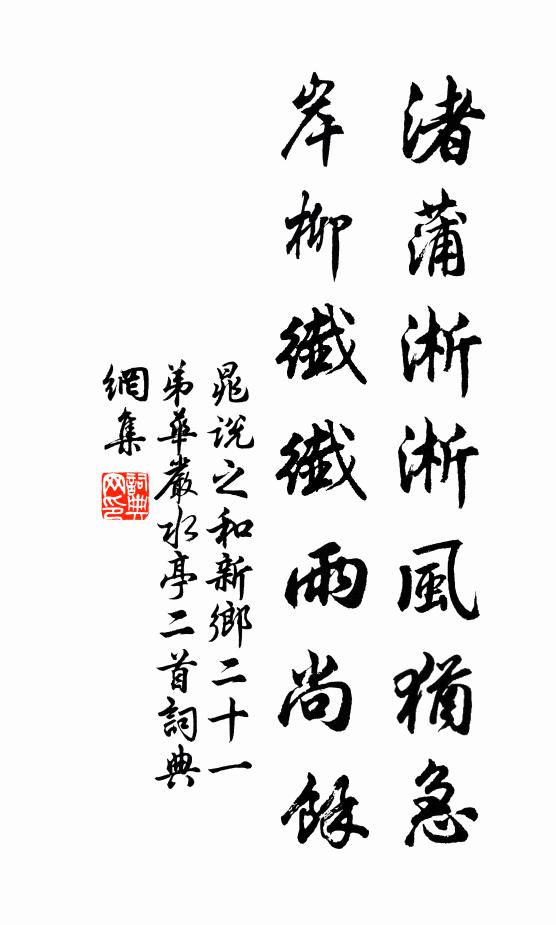 渚蒲淅淅風猶急
岸柳纖纖雨尚餘
晁說之和新鄉二十一
弟華嚴水亭二首詞典
網集
詞典網印